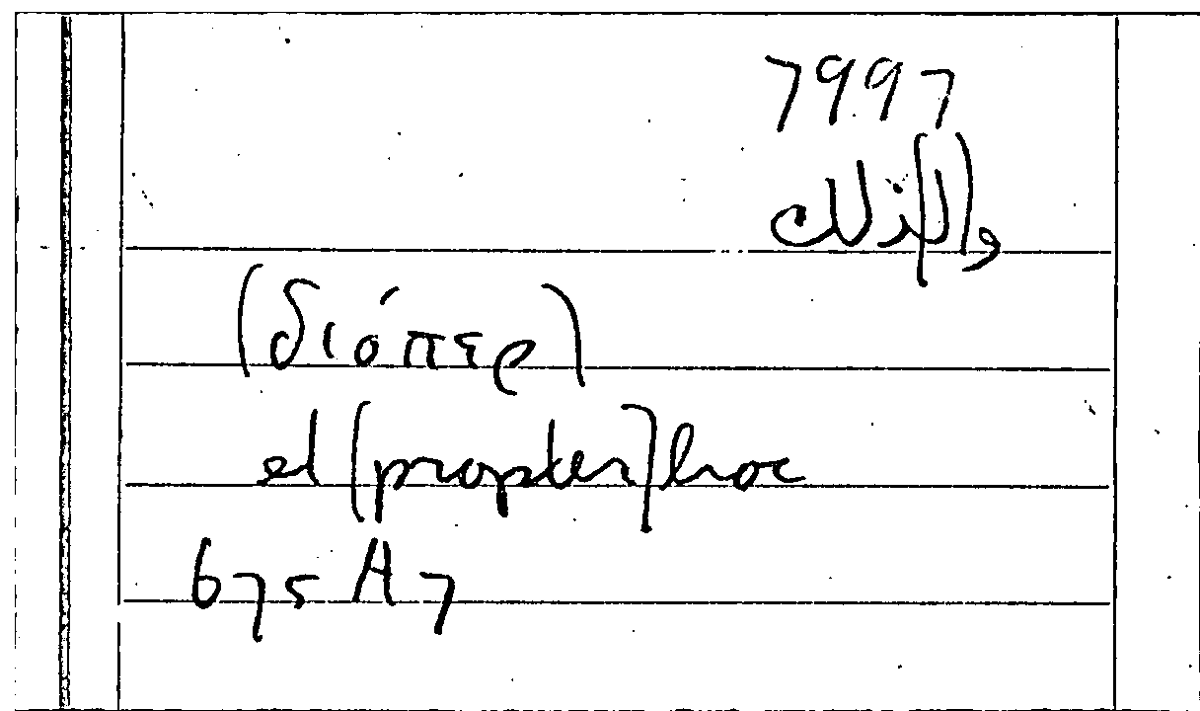 7997
و(ل)ذلك
(διόπερ)
et (propter) hoc
675 A 7